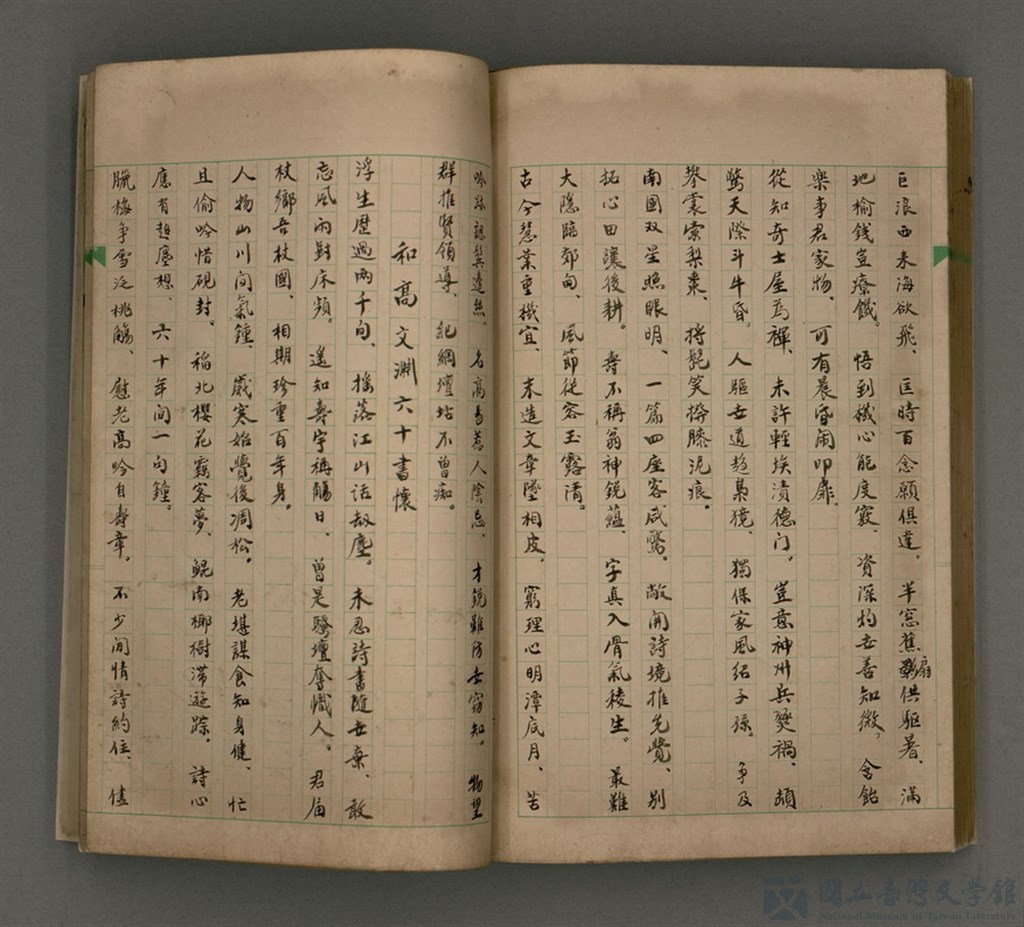 巨浪西來海欲飛、匡時百念願俱違。半窓蕉扇供驅暑、滿
地榆錢豈療饑。悟到機心能度竅、資深灼世善知微。含飴
樂事君家物、可有晨昏鬧叩扉。
從知奇士屋為禪、未許輕埃漬德门。豈意神州兵燹禍、頓
驚天際斗牛昏。人驅世道趨梟獍、獨保家風紹子孫。爭及
搴裳索梨棗、捋髭笑撏膝泥痕。
南國双星照眼明、一篇四座客咸驚。敞開詩境推先覺、別
拓心田讓後耕。壽不稱翁神銳蘊、字真入骨氣稜生。最難
大隱臨郊甸、風節從容玉露清。
古今慧業重機宜、末造文章墜相皮。窮理心明潭底月、苦
吟髭認鬂邊絲。名高易惹人陰忌、才銳難防世竊知。物望
群推賢領導、紀綱壇坫不曾痴。
和高文淵六十書懷
浮生歷過兩千旬、搖落江山話劫塵。未忍詩書隨世棄、敢
忘風雨對床頻。遙知壽宇稱觴日、曾是騷壇奪幟人。君届
杖鄉吾杖國、相期珍重百年身。
人物山川间氣鍾、歲寒始覺後凋松。老堪謀食知身健、忙
且偷吟惜硯封。稲北櫻花霧客夢、鯤南椰樹滯遊踪。詩心
應有超塵想、六十年间一句鐘。
臘梅爭雪泛桃觴、慰老高吟自壽章。不少閒情詩約住、儘
國立臺灣文學館
National Museum of Taiwan Literature